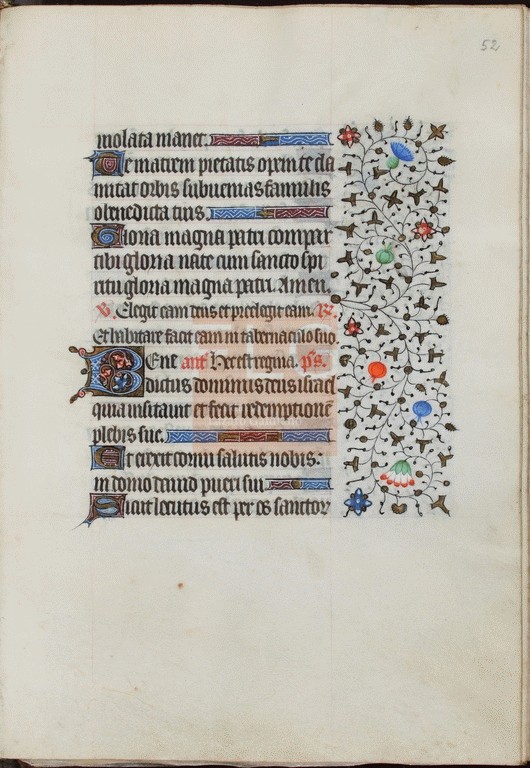 52
uiolata manet.
Te matrem pietatis opem te da
mitat orbis subuenias famulis
o benedicta tuis.
Gloria magna patri compar
tibi gloria nate cum sancto spi
ritu gloria magna patri. Amen.
V. Elegit eam deus et preelegit eam. R.
Et habitare facit eam in tabernaculo suo.
BEne ant Hec est regina. ps.
dictus dominus deus israel
quia uisitauit et fecit redemptionē
plebis sue.
Et erexit cornu salutis nobis:
in domo dauid pueri sui
Sicut locutus est per os sanctor